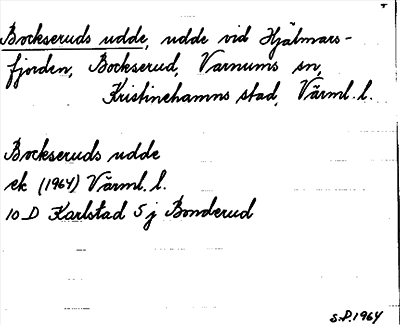 Bockseruds udde, udde vid Hjälmars-
fjorden, Bockserud, Varnums sn,
Kristinehamns stad, Värml. l.
Bockseruds udde
ek (1964) Värml. l.
10 D Karlstad 5 j Bonderud
S.P. 1964